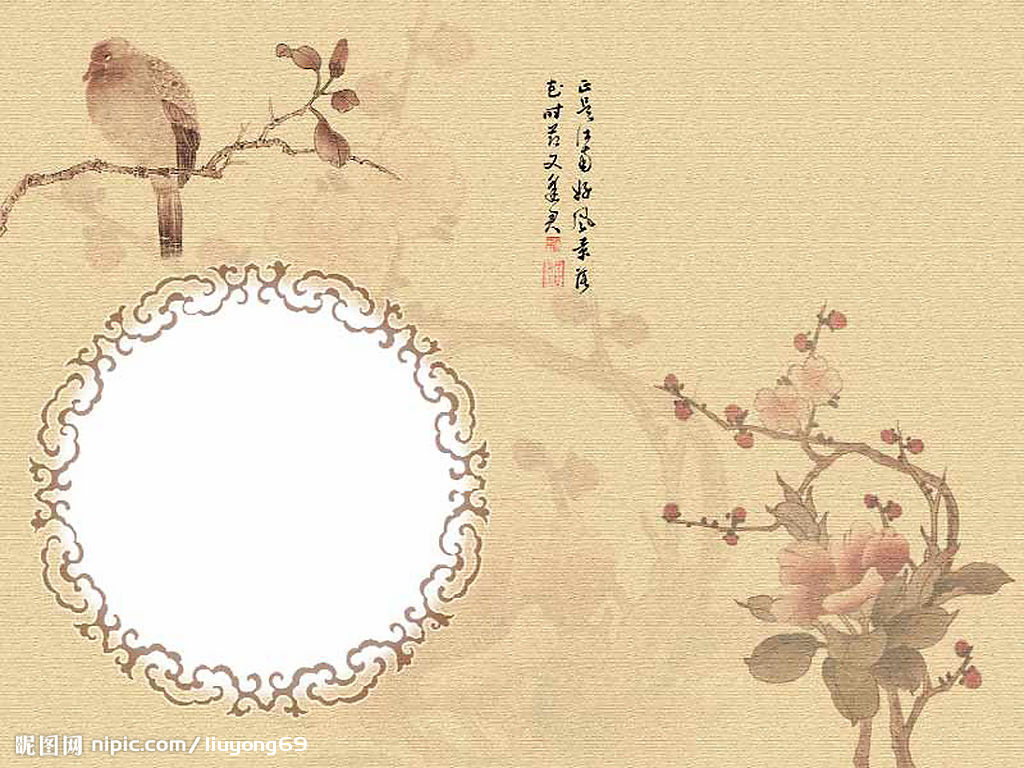 正是江南好风景落
花时节又逢君
昵图网 nipic.com/liuyong69